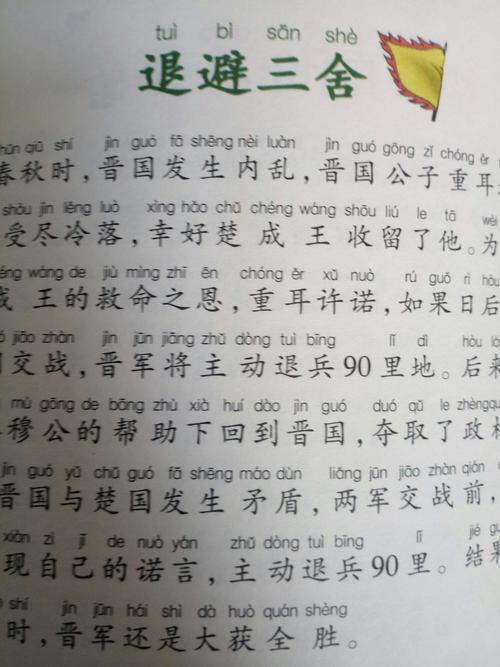 tuì bì sān shè
退避三舍
chūn qiū shí jìn guó fā shēng nèi luàn jìn guó gōng zǐ chóng ěr
春秋时,晋国发生内乱,晋国公子重耳
shòu jìn lěng luò xìng hǎo chǔ chéng wáng shōu liú le tā wèi
受尽冷落,幸好楚成王收留了他。为
chéng wáng de jiù mìng zhī ēn chóng ěr xǔ nuò rú guǒ rì hòu
成王的救命之恩,重耳许诺,如果日后
jiāo zhàn jìn jūn jiāng zhǔ dòng tuì bīng lǐ dì hòu lái
交战,晋军将主动退兵90里地。后来
mù gōng de bāng zhù xià huí dào jìn guó duó qǔ le zhèng
穆公的帮助下回到晋国,夺取了政权
jìn guó yǔ chǔ guó fā shēng máo dùn liǎng jūn jiāo zhàn qián
晋国与楚国发生矛盾,两军交战前,
xiàn zì jǐ de nuò yán zhǔ dòng tuì bīng lǐ jié guǒ
现自己的诺言,主动退兵90里。结果
shí jìn jūn hái shì dà huò quán shèng
时,晋军还是大获全胜。